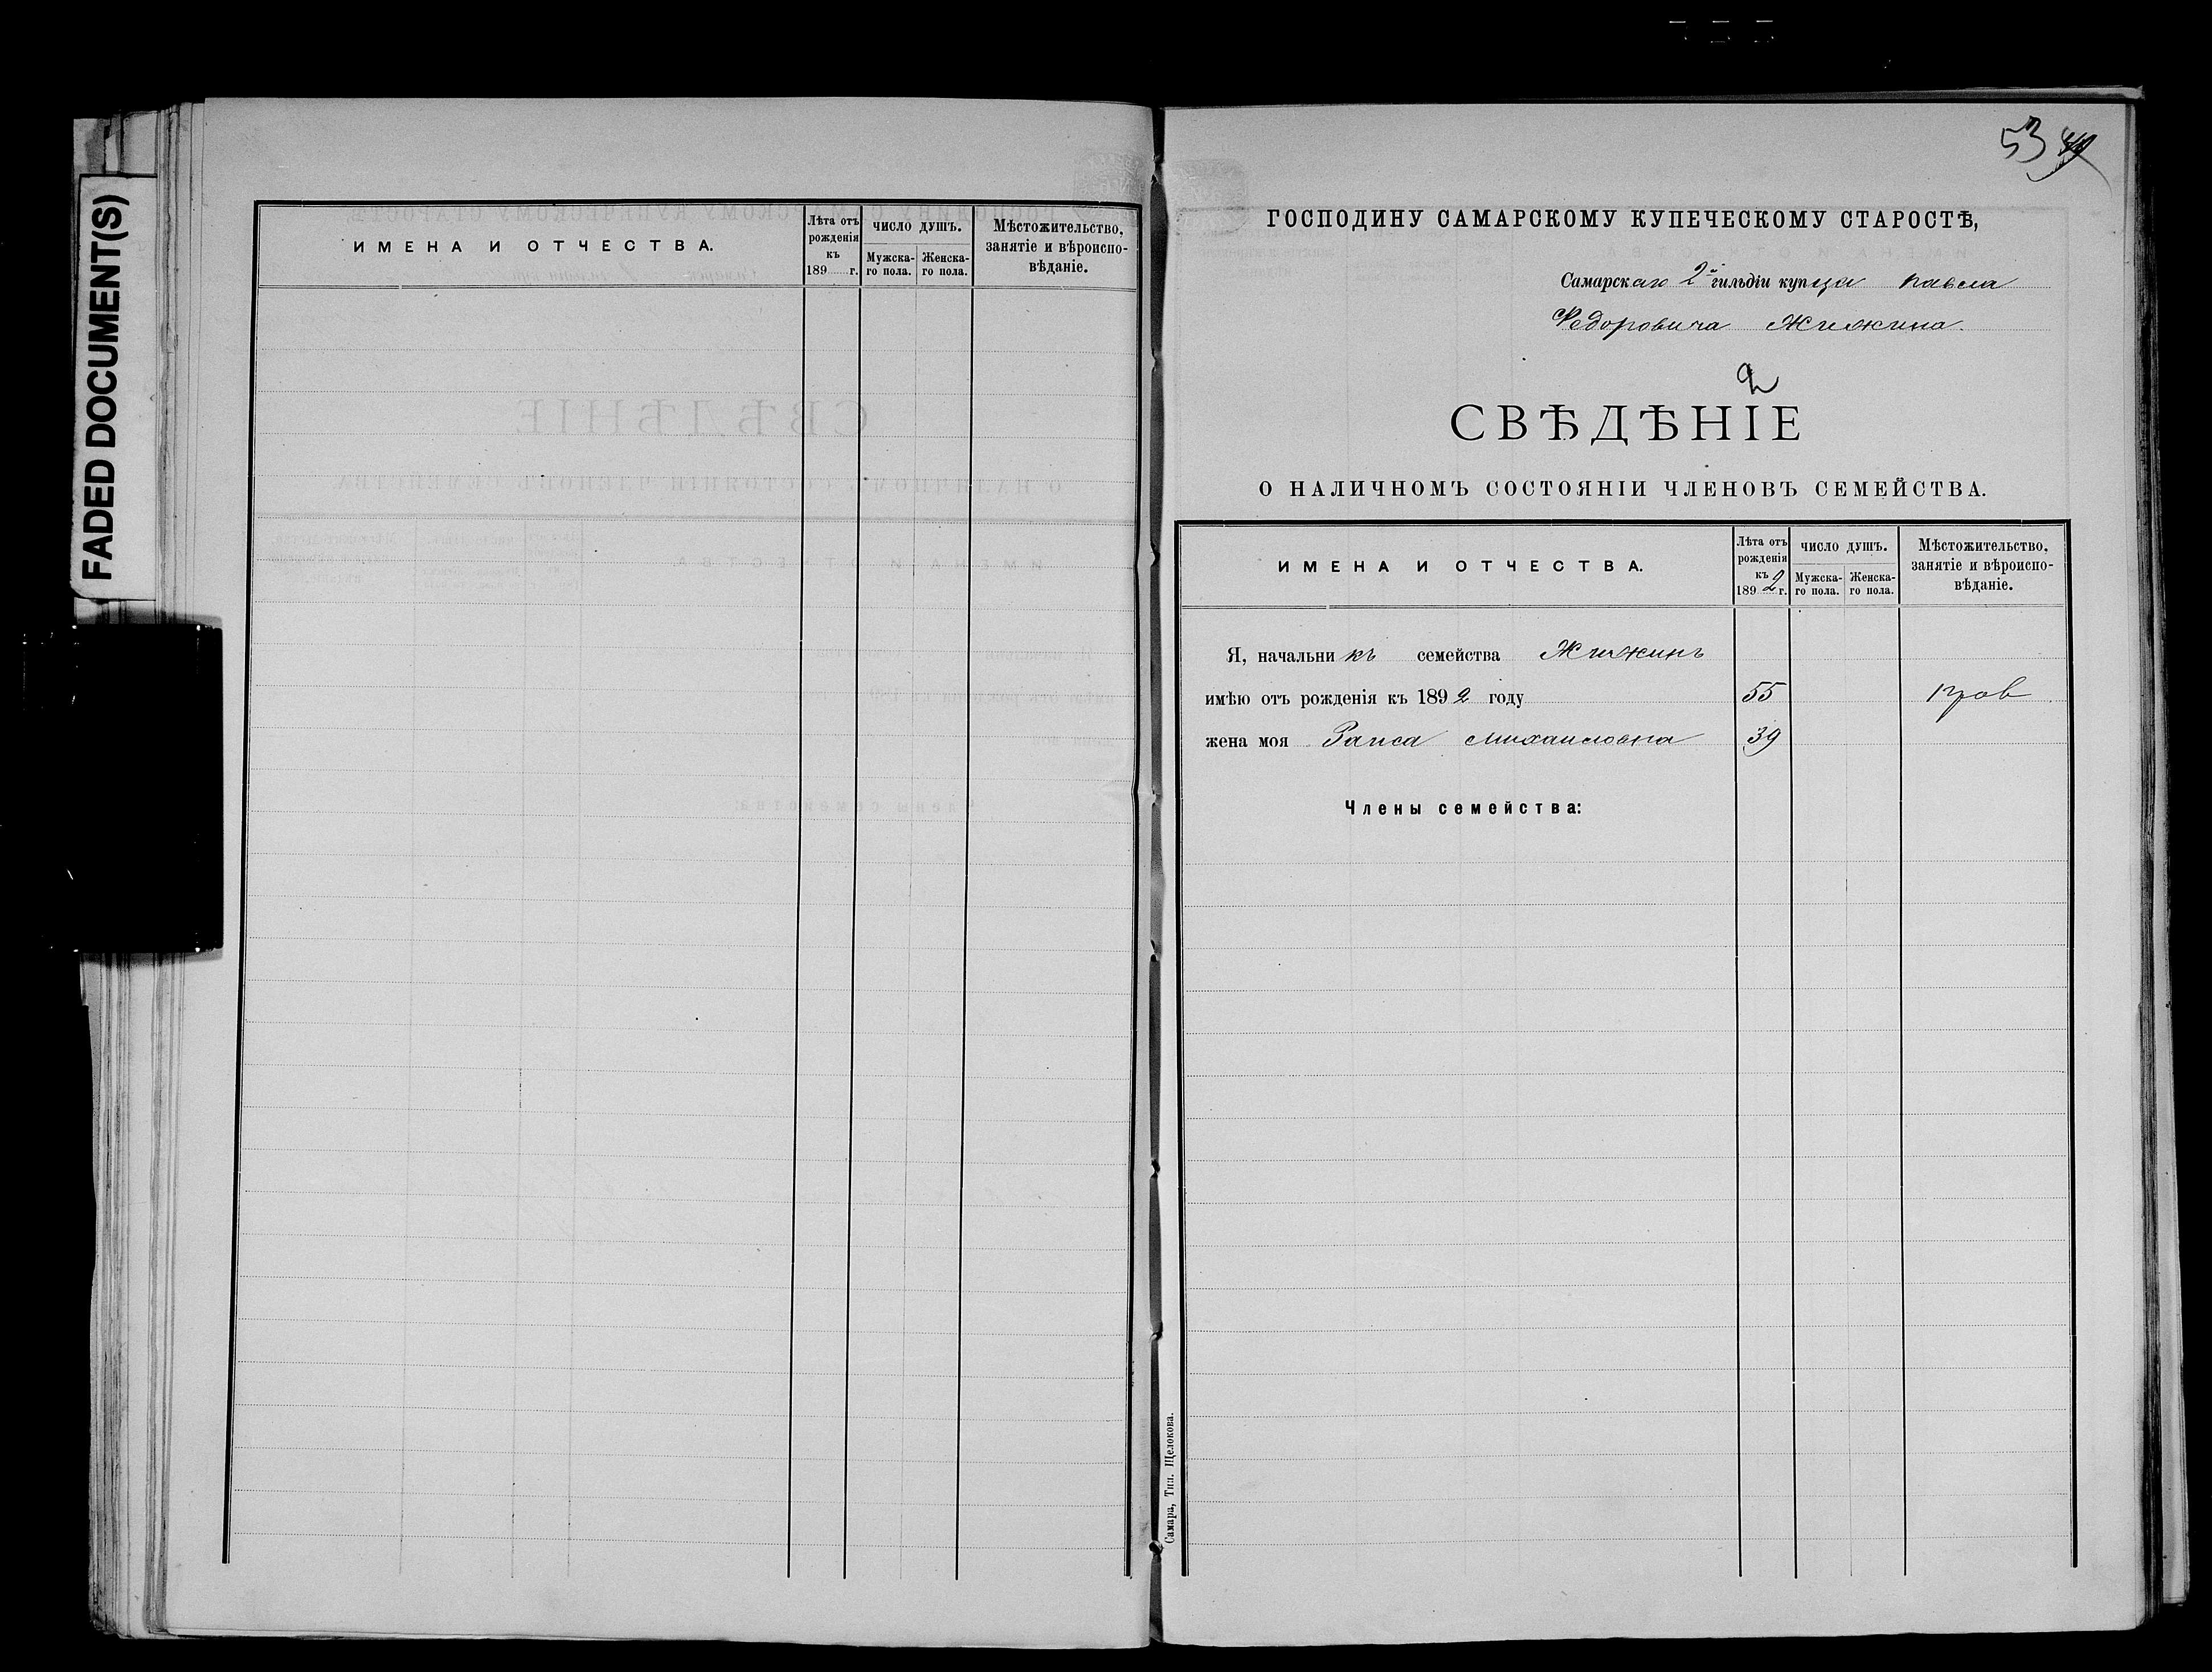 FADED DOCUMENT(S)
ИМЕНА И ОТЧЕСТВА.
Лѣта отъ рожденія къ 189 г.
ЧИСЛО ДУШЪ.
Мужска-го пола.
Женска-го пола.
Мѣстожительство, занятіе и вѣроиспо-вѣданіе.
53
ГОСПОДИНУ САМАРСКОМУ КУПЕЧЕСКОМУ СТАРОСТѢ,
Самарскаго 2й гильдіи купца Павла
Федоровича Жижина.
2
СВѢДѢНІЕ
О НАЛИЧНОМЪ СОСТОЯНІИ ЧЛЕНОВЪ СЕМЕЙСТВА.
ИМЕНА И ОТЧЕСТВА.
Лѣта отъ рожденія къ 1892 г.
ЧИСЛО ДУШЪ.
Мужска-го пола.
Женска-го пола.
Мѣстожительство, занятіе и вѣроиспо-вѣданіе.
Я, начальникъ семейства Жижинъ
имѣю отъ рожденія къ 1892 году 55 прав
жена моя Раиса Михаиловна 39
Члены семейства:
Самара, Тип. Щелокова.